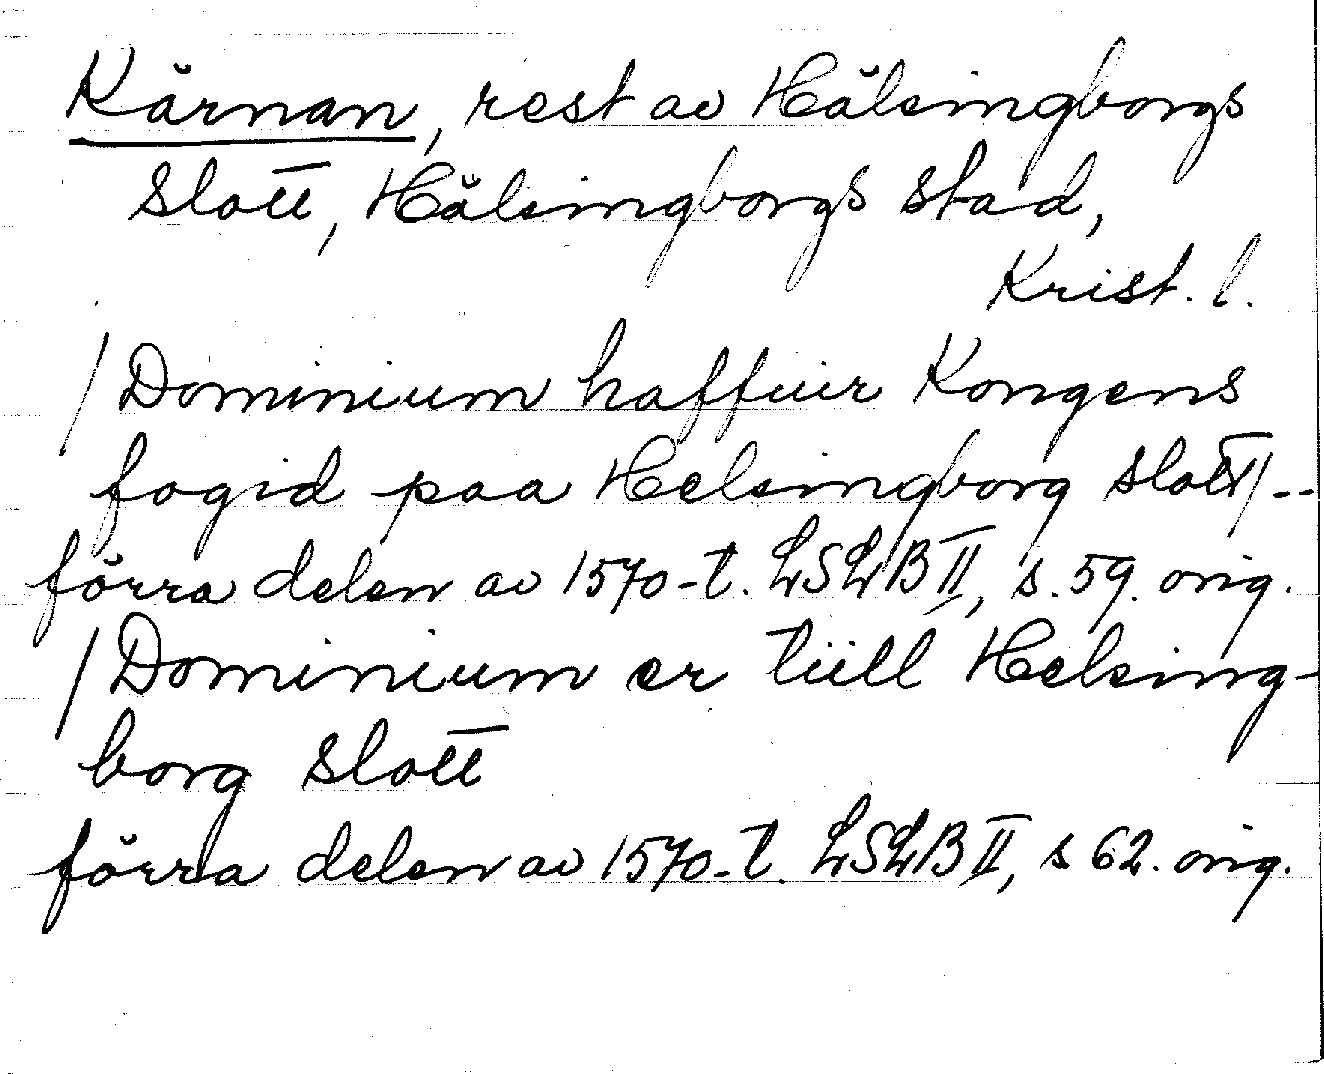 Kärnan, rest av Hälsingborgs
slott, Hälsingborgs stad,
Krist. l.
/Dominium haffuer Kongens
fogid paa Helsingborg slott/--
förra delen av 1570-t. LSLB II, s. 59. orig.
/Dominium er tiill Helsing-
borg slott
förra delen av 1570-t. LSLB II, s 62. orig.